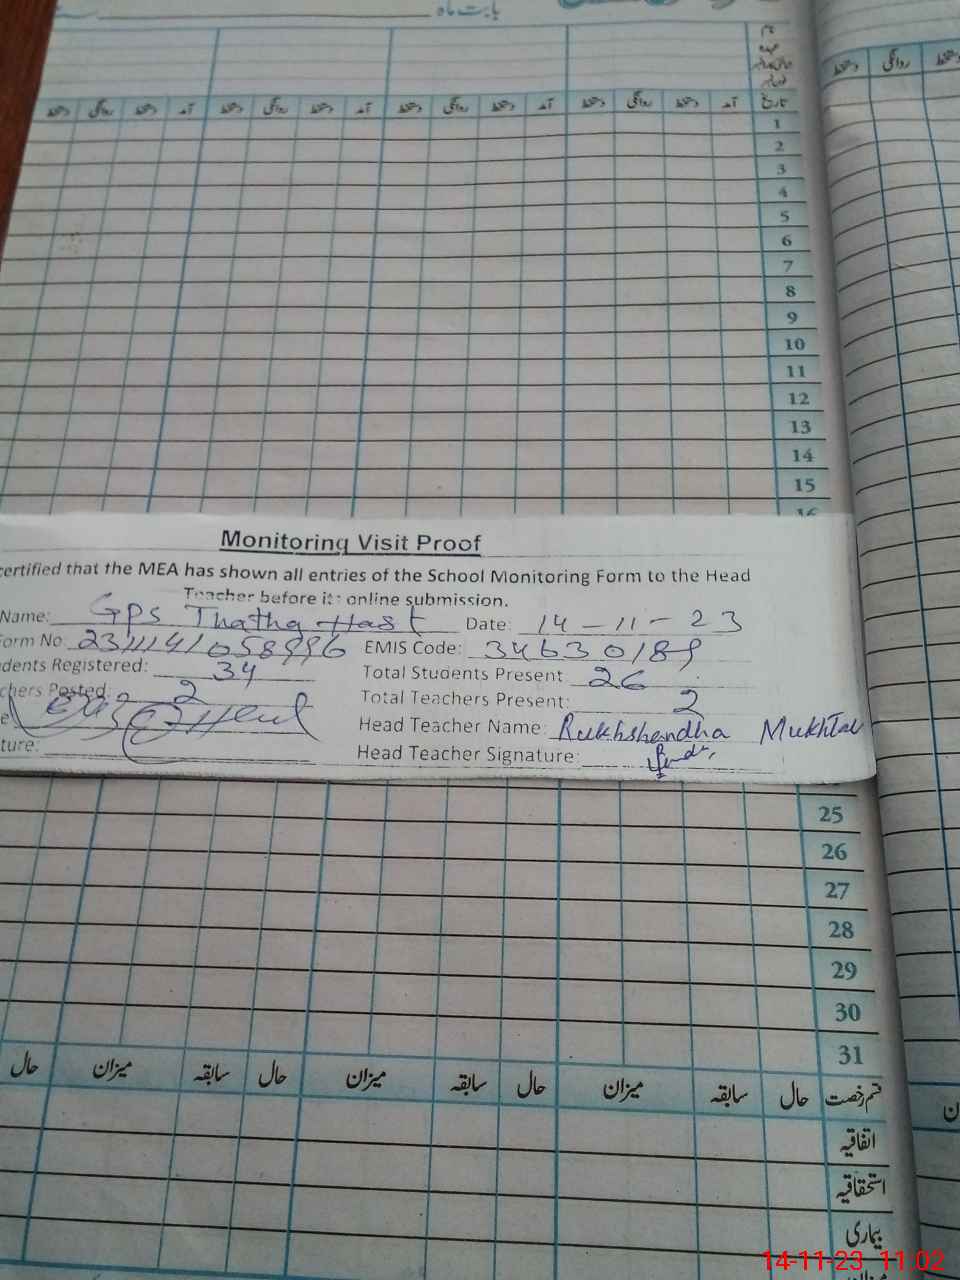 بابت ماہ
نام
عہدہ
تاریخ آمد دستخط روانگی دستخط آمد دستخط روانگی دستخط آمد دستخط روانگی دستخط آمد دستخط روانگی دستخط
دستخط روانگی دستخط
1
2
3
4
5
6
7
8
9
10
11
12
13
14
15
16
Monitoring Visit Proof
certified that the MEA has shown all entries of the School Monitoring Form to the Head
Teacher before its online submission.
Name: GPS Thatha Hast Date: 14-11-23
Form No: EMIS Code: 34630189
dents Registered: 34 Total Students Present: 26
chers Posted: 2 Total Teachers Present: 2
e Head Teacher Name: Rukhshandha Mukhtar
ture: Head Teacher Signature:
25
26
27
28
29
30
31
قسم رخصت حال سابقہ میزان حال سابقہ میزان حال سابقہ میزان حال
اتفاقیہ
استحقاقیہ
بیماری
14-11-23 11:02